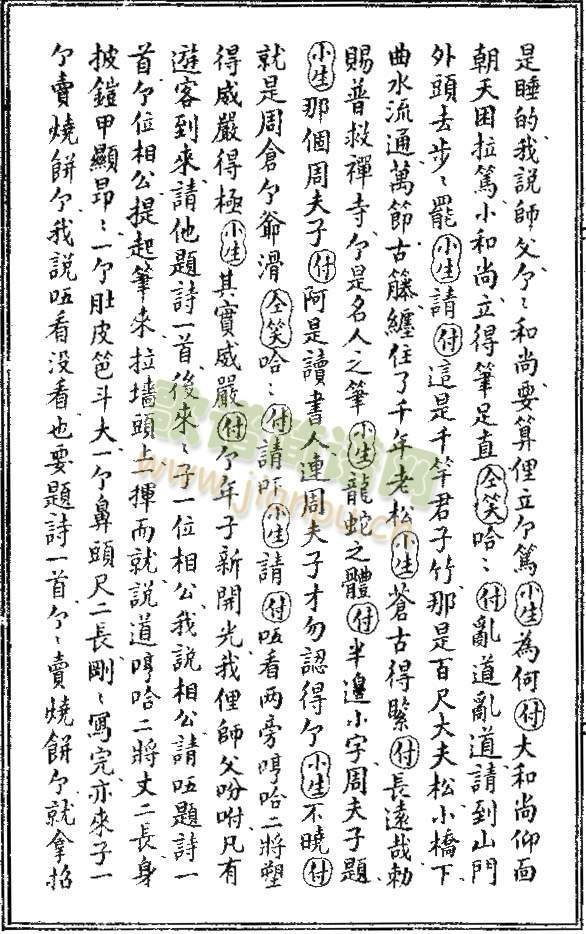 是睡的我說師父个〻和尚要算俚立个篤小生為何付大和尚仰面
朝天困拉篤小和尚立得筆足直仝笑哈〻付亂道亂道請到山門
外頭去步〻罷小生請付這是千竿君子竹那是百尺大夫松小橋下
曲水流通萬節古籐纏住了千年老松小生蒼古得緊付長遠哉勅
賜普救禪寺个是名人之筆小生龍蛇之體付半邉小字周夫子題
小生那個周夫子付阿是讀書人連周夫子才勿認得个小生不曉付
就是周倉个爺滑仝笑哈〻付請吓小生請付唔看兩旁哼哈二將塑
得威嚴得極小生其實威嚴付个年子新開光我俚師父吩咐凡有
遊客到來請他題詩一首後來〻子一位相公我說相公請唔題詩一
首个位相公提起筆來拉墻頭上一揮而就說道哼哈二將丈二長身
披鎧甲顯昻〻一个肚皮笆斗大一个鼻頭尺二長剛〻寫完亦來子一
个賣燒餅个我說唔看没看也要題詩一首个〻賣燒餅个就拿掐
歌譜簡譜网
www.jianpu.cn